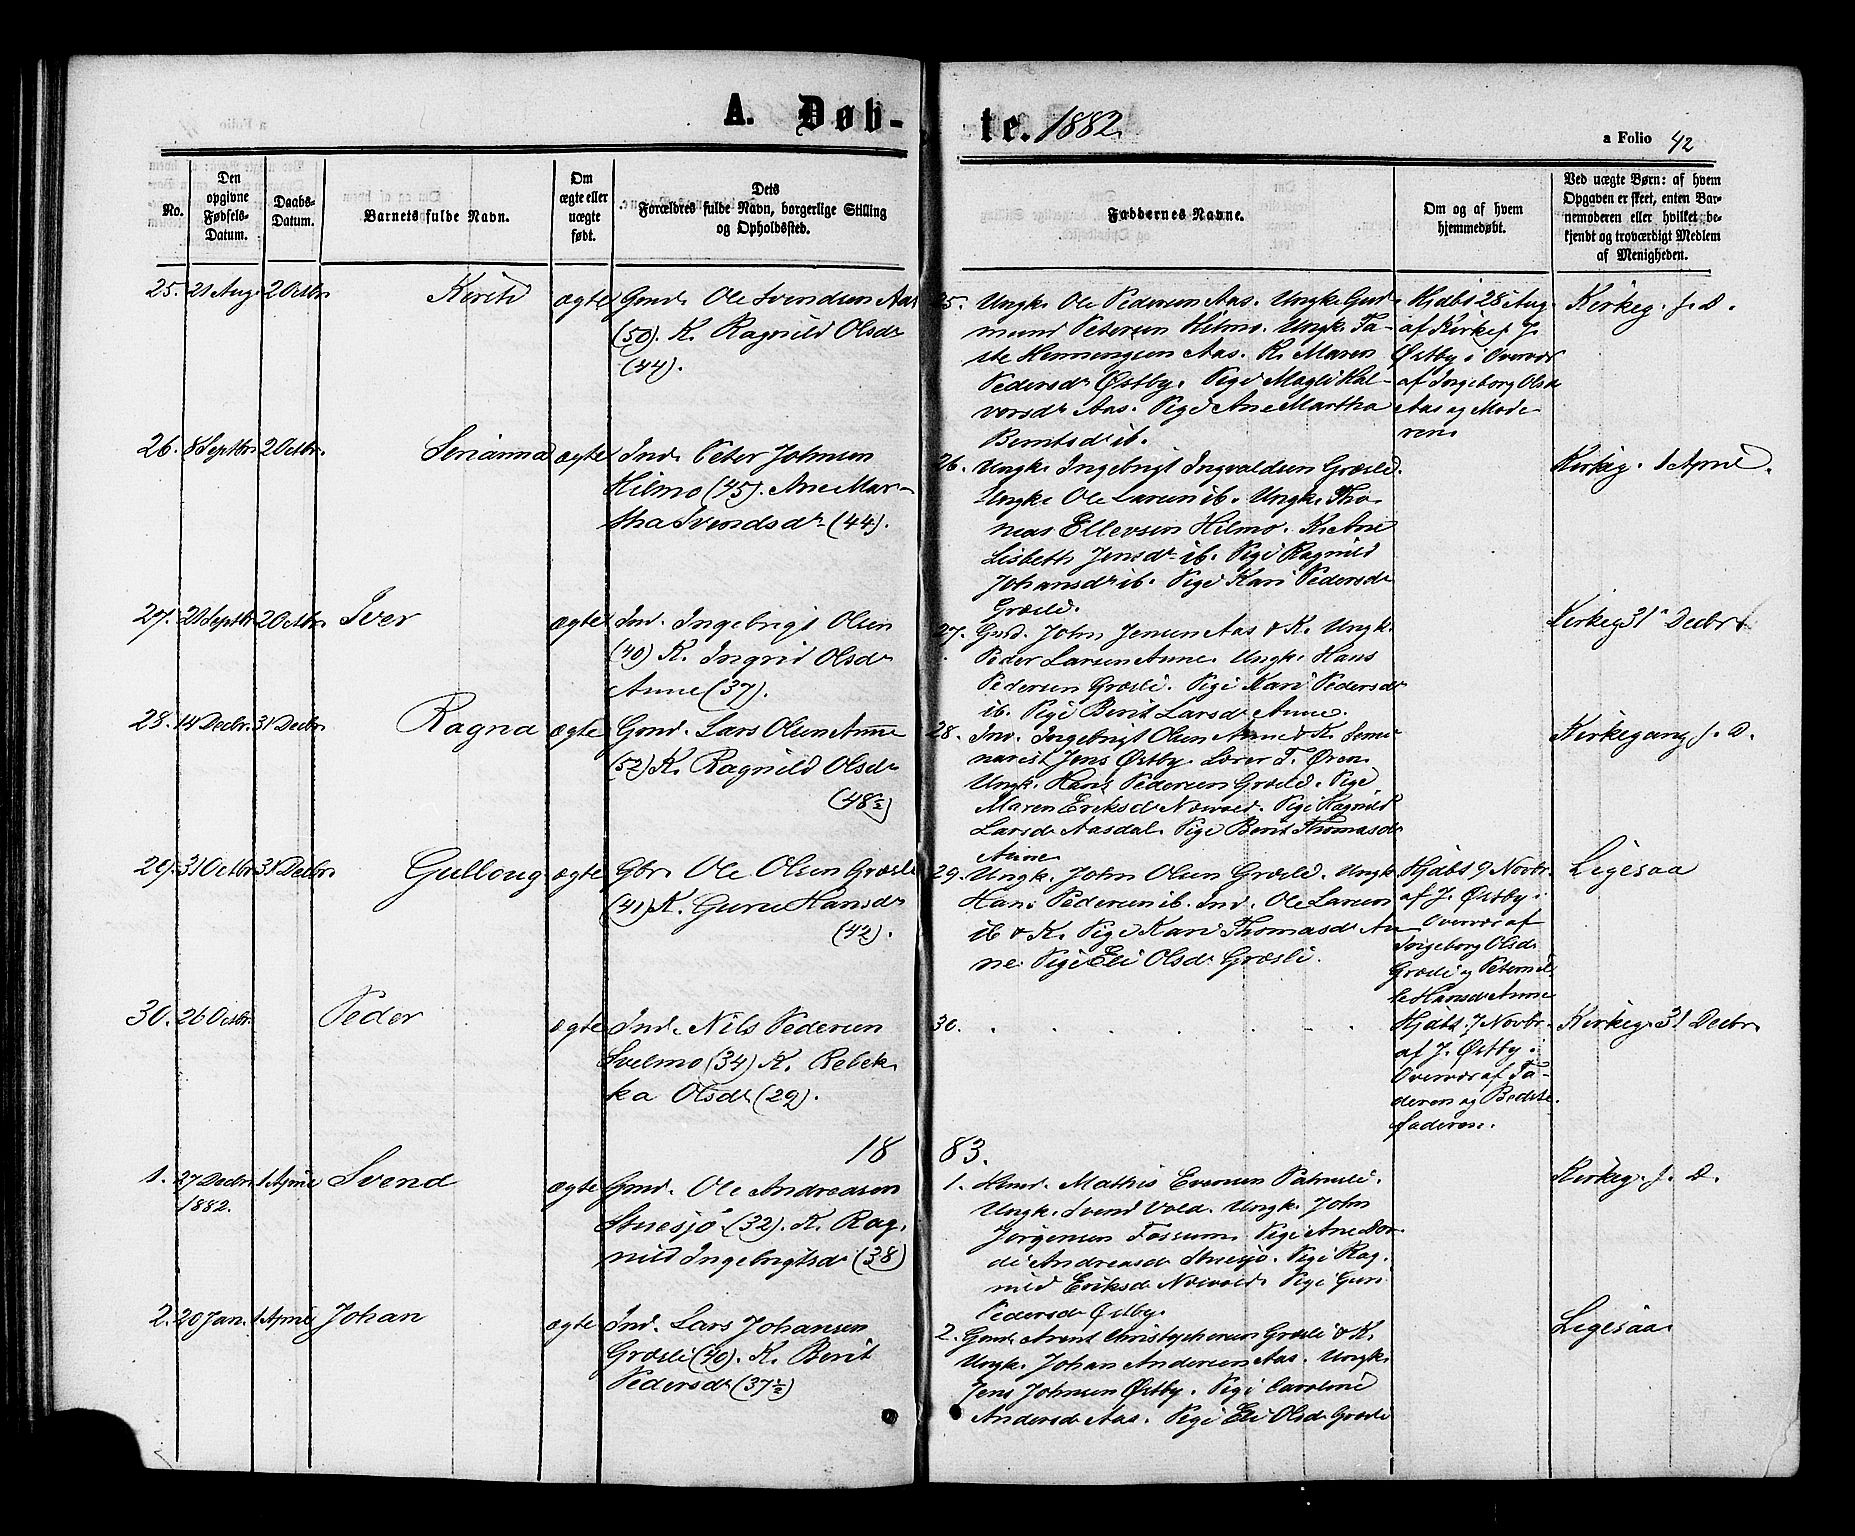 A. Døb- te. 1882.
a Folio 42
No.
Den opgivne Fødsels-Datum.
Daabs-Datum.
Barnets fulde Navn.
Om ægte eller uægte født.
Dets Forældres fulde Navn, borgerlige Stilling og Opholdssted.
Faddernes Navne.
Om og af hvem hjemmedøbt.
Ved uægte Børn: af hvem Opgaven er skeet, enten Barnemoderen eller hvilket bekjendt og troværdigt Medlem af Menigheden.
25. 21 Aug. 2 Octbr. ægte Gmd. Ole Svendsen Aas
(50). K. Ragnild Olsdr
(44).
25. Ungk. Ole Pedersen Aas. Ungk. Gud-
mund Petersen Hilmo. Ungk. Ta-
ste Henningsen Aas. K. Maren
Pedersdr Østby. Pige Magli Hal-
vorsdr Aas. Pige Ane Martha
Berntsdr ib.
Hjdbt 28 Aug.
af Kirkes. J.
Østby i Overvær
af Ingeborg Olsd
Aas og Mode-
ren.
Kirkeg. s. D.
26. 8 Septbr. 2 Octbr. Serianna ægte Ind. Peter Johnsen
Hilmo (45). Ane Mar-
tha Svendsdr (44).
26. Ungk. Ingebrigt Ingvaldsen Græsli.
Ungk. Ole Larsen ib. Ungk. Tho-
mas Ellevsen Hilmo. K. Ane
Lisbeth Jensdr ib. Pige Ragnild
Johansdr ib. Pige Kari Pedersdr
Græsli.
Kirkeg. 1 April.
27. 21 Septbr. 2 Octbr. Iver ægte Ind. Ingebrigt Olsen
(40) K. Ingrid Olsdr
Aune (37).
27. Gmd. John Jensen Aas & K. Ungk.
Peder Larsen Aune. Ungk. Hans
Pedersen Græsli. Pige Kari Pedersdr
ib. Pige Berit Larsdr Aune.
Kirkeg. 31 Decbr.
28. 14 Decbr. 31 Decbr. Ragna ægte Gmd. Lars Olsen Aune
(52) K. Ragnild Olsdr
(48½)
28. Ind. Ingebrigt Olsen Aune & K. Semi-
narist Jens Østby. Lærer T. Øren.
Ungk. Hans Pedersen Græsli. Pige
Maren Eriksdr Norvold. Pige Ragnild
Larsdr Aasdal. Pige Berit Thomasdr
Aune.
Kirkegang s. D.
29. 31 Octbr. 31 Decbr. Gullaug ægte Gbr. Ole Olsen Græsli
(41) K. Guru Hansdr
(42).
29. Ungk. John Olsen Græsli. Ungk.
Hans Pedersen ib. Ind. Ole Larsen
ib & K. Pige Kari Thomasdr Au-
ne. Pige Eli Olsdr Græsli.
Hjdbt 9 Novbr.
af J. Østby i
Overvær af
Ingeborg Olsdr
Græsli og Peternil-
le Hansdr Aune
Ligesaa
30. 26 Octbr. Peder ægte Ind. Nils Pedersen
Svelmo (34) K. Rebek-
ka Olsdr (29).
30.
Hjdbt 7 Novbr.
af J. Østby i
Overvær af Fa-
deren og Bedste-
faderen.
Kirkeg. 31 Decbr.
1883.
1. 27 Decbr. 1 April Svend ægte Gmd. Ole Andreasen
1882. Stuesjø (32). K. Rag-
nild Ingebrigtsdr (38)
1. Gmd. Mathis Evensen
Ungk. Svend Vold. Ungk. John
Jørgensen Fossum. Pige Ane Dor-
de Andreasdr Stuesjø. Pige Rag-
nild Eriksdr Norvold. Pige Guri
Pedersdr Østby.
Kirkeg. s. D.
2. 20 Jan. 1 April Johan ægte Ind. Lars Johansen
Græsli (40). K. Berit
Pedersdr (37½)
2. Gmd. Arent Christophersen Græsli & K.
Ungk. Johan Andersen Aas. Ungk.
Jens Johnsen Østby. Pige Caroline
Andersdr Aas. Pige Eli Olsdr Græsli
Ligesaa